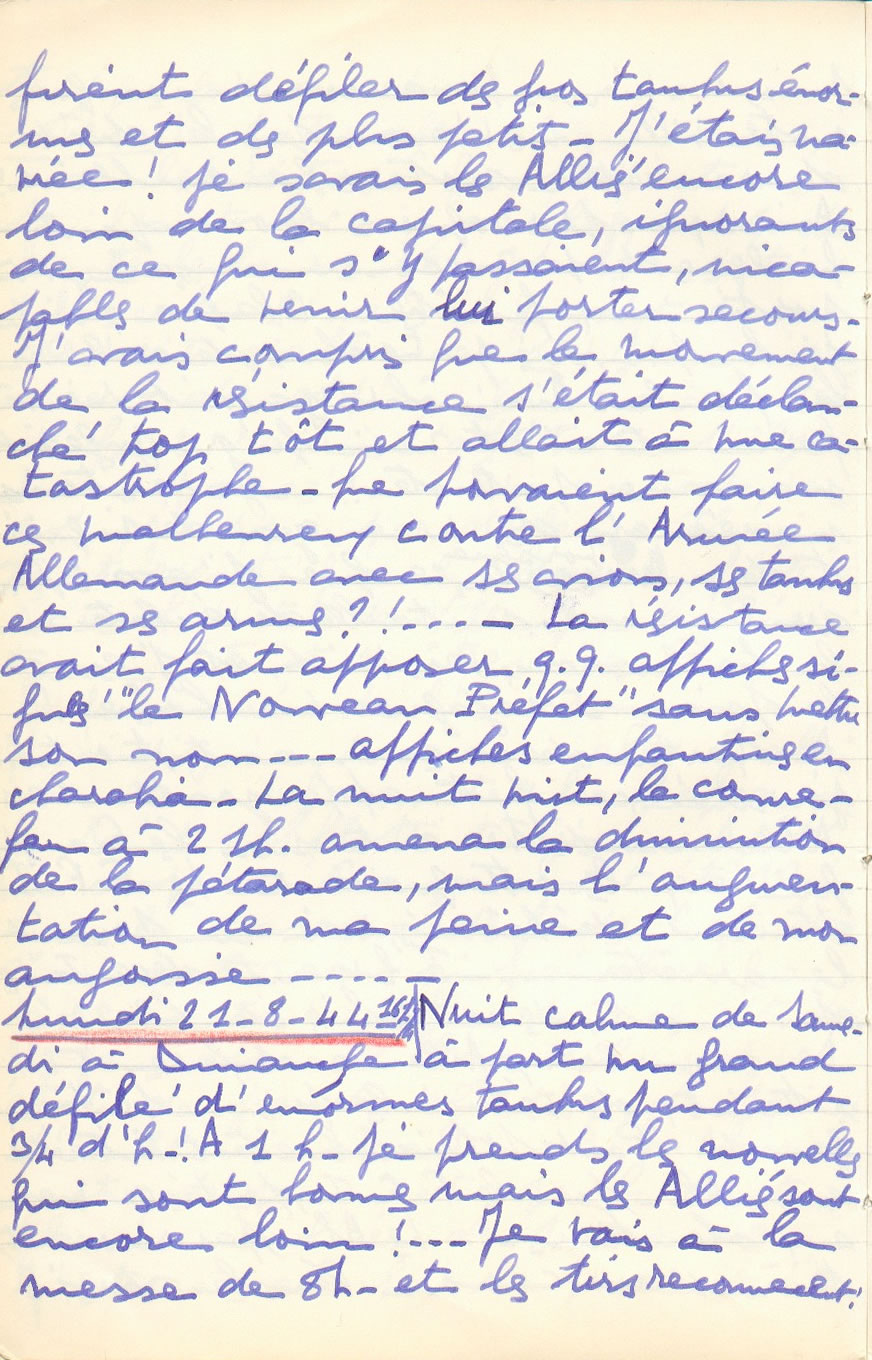 firent défiler des gros tanks énor-
mes et des plus petits - J'étais na-
vrée! je savais les Alliés encore
loin de la capitale, ignorants
de ce qui s'y passaient, inca-
pables de venir lui porter secours.
J'avais compris que le mouvement
de la résistance s'était déclan-
ché trop tôt et allait à une ca-
tastrophe - que pouvaient faire
ces malheureux contre l'Armée
Allemande avec ses avions, ses tanks
et ses armes?!----- La résistance
avait fait apposer q.q. affiches si-
gnés "le Nouveau Préfet" sans mettre
son nom --- affiches enfantines en
charabia - La nuit vint, le couvre-
feu à 21h. amena la diminution
de la pétarade, mais l'augmen-
tation de ma peine et de mon
angoisse -----
Lundi 21-8-44 Nuit calme de same-
di à Dimanche à part un grand
défilé d'enormes tanks pendant
3/4 d'h-! A 1 h- je prends les nouvelles
qui sont bonnes mais les Alliés sont
encore loin!--- Je vais à la
messe de 8h- et les tirs recommencent!